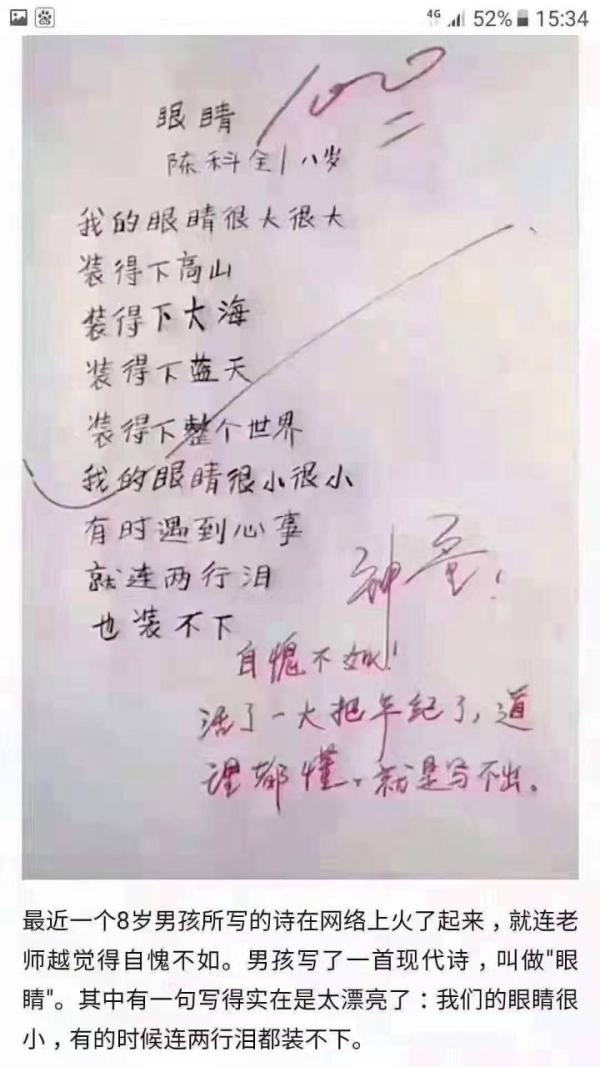 4G 52% 15:34
100
眼睛
陈科全 八岁
我的眼睛很大很大
装得下高山
装得下大海
装得下蓝天
装得下整个世界
我的眼睛很小很小
有时遇到心事
就连两行泪
也装不下
神童！
自愧不如！
活了一大把年纪了，道
理都懂，就是写不出。
最近一个8岁男孩所写的诗在网络上火了起来，就连老
师越觉得自愧不如。男孩写了一首现代诗，叫做"眼
睛"。其中有一句写得实在是太漂亮了：我们的眼睛很
小，有的时候连两行泪都装不下。